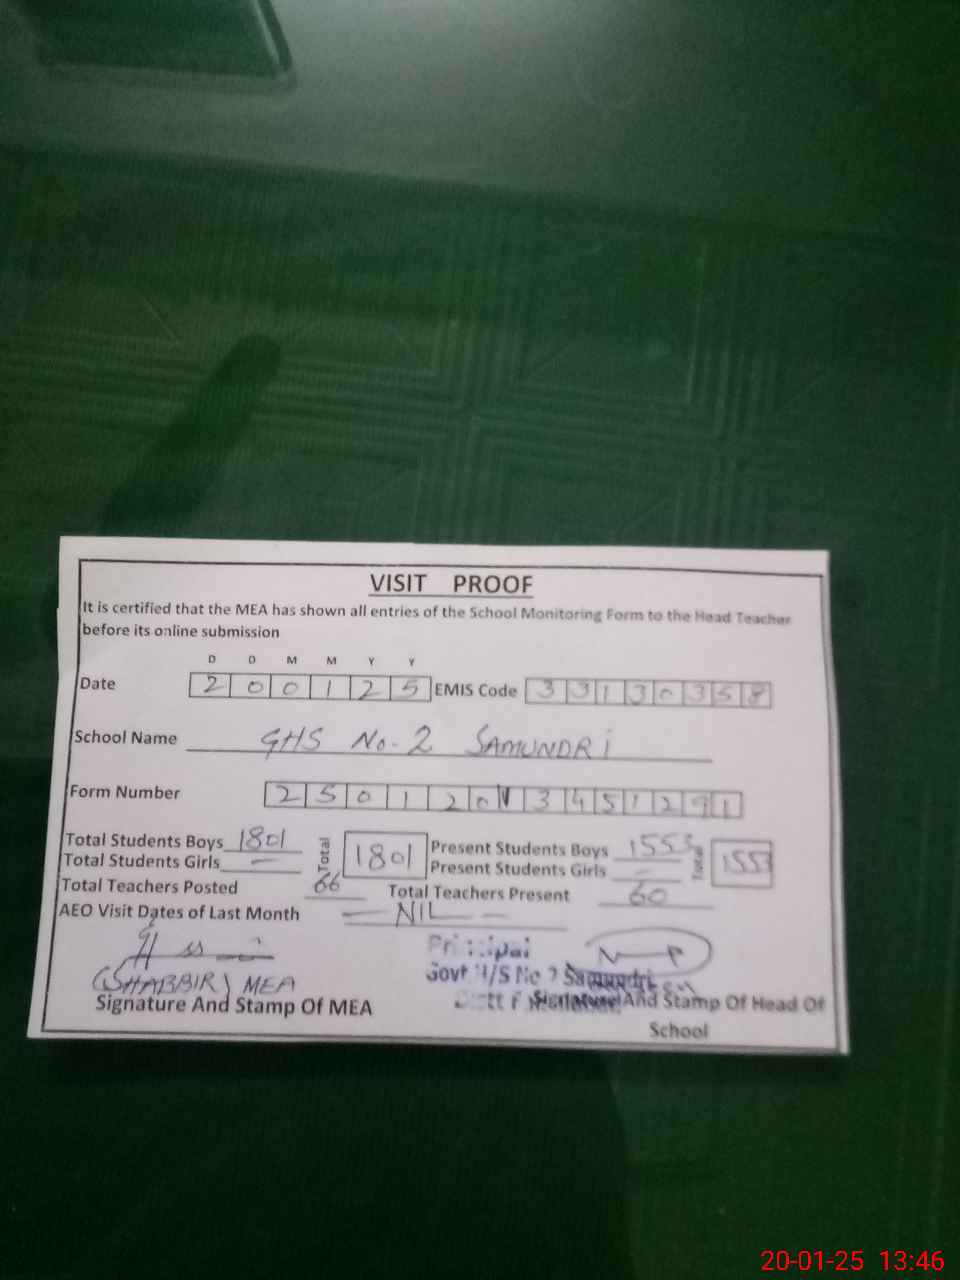 VISIT PROOF
It is certified that the MEA has shown all entries of the School Monitoring Form to the Head Teacher
before its online submission
D D M M Y Y
Date 2 0 0 1 2 5 EMIS Code 3 3 1 3 0 3 5 8
School Name GHS No-2 SAMUNDRi
Form Number 2 5 0 1 2 0 1 3 4 5 1 2 9 1
Total Students Boys 1801 Total 1801 Present Students Boys 1553 Total 1553
Total Students Girls — Present Students Girls —
Total Teachers Posted 66 Total Teachers Present 60
AEO Visit Dates of Last Month — NIL —
Principal
(SHABBIR) MEA Govt H/S No 2 Samundri
Signature And Stamp Of MEA Signature And Stamp Of Head Of
School
20-01-25 13:46